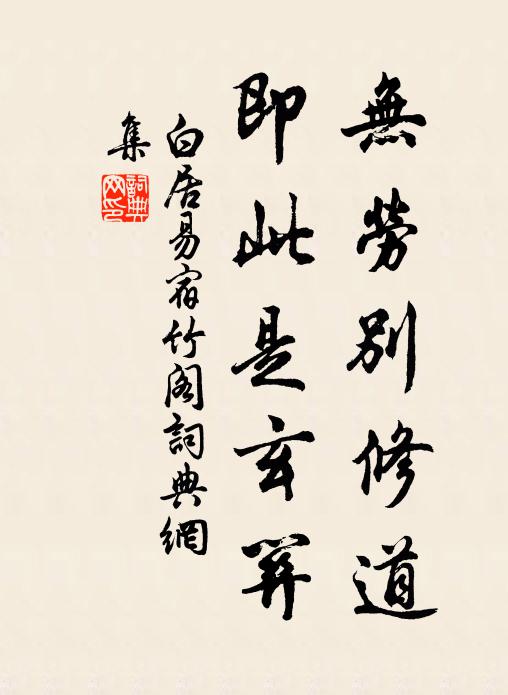 無勞別修道
即此是玄關
白居易宿竹閣詞典網
集
詞典
网印